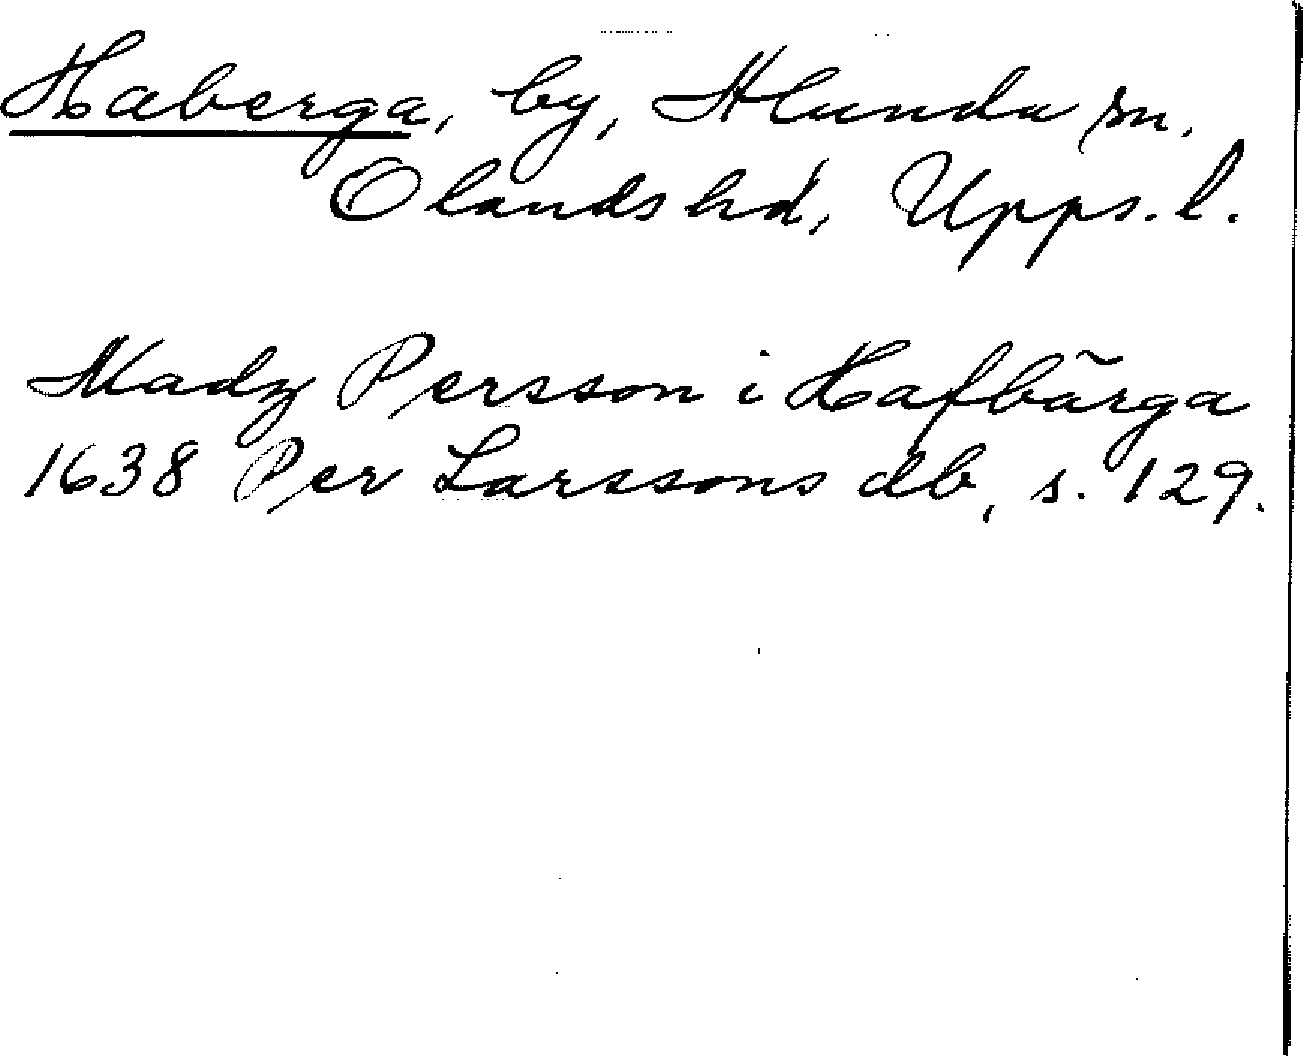 Haberga, by, Alunda sn.
Olands hd, Upps. l.
Madz Persson i Hafbärga
1638 Per Larssons db, s. 129.